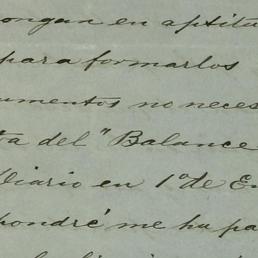 ongan en aptitu
para formarlos
umentos no neces
ta del "Balance
Diario en 1º de En
pondré me ha pa